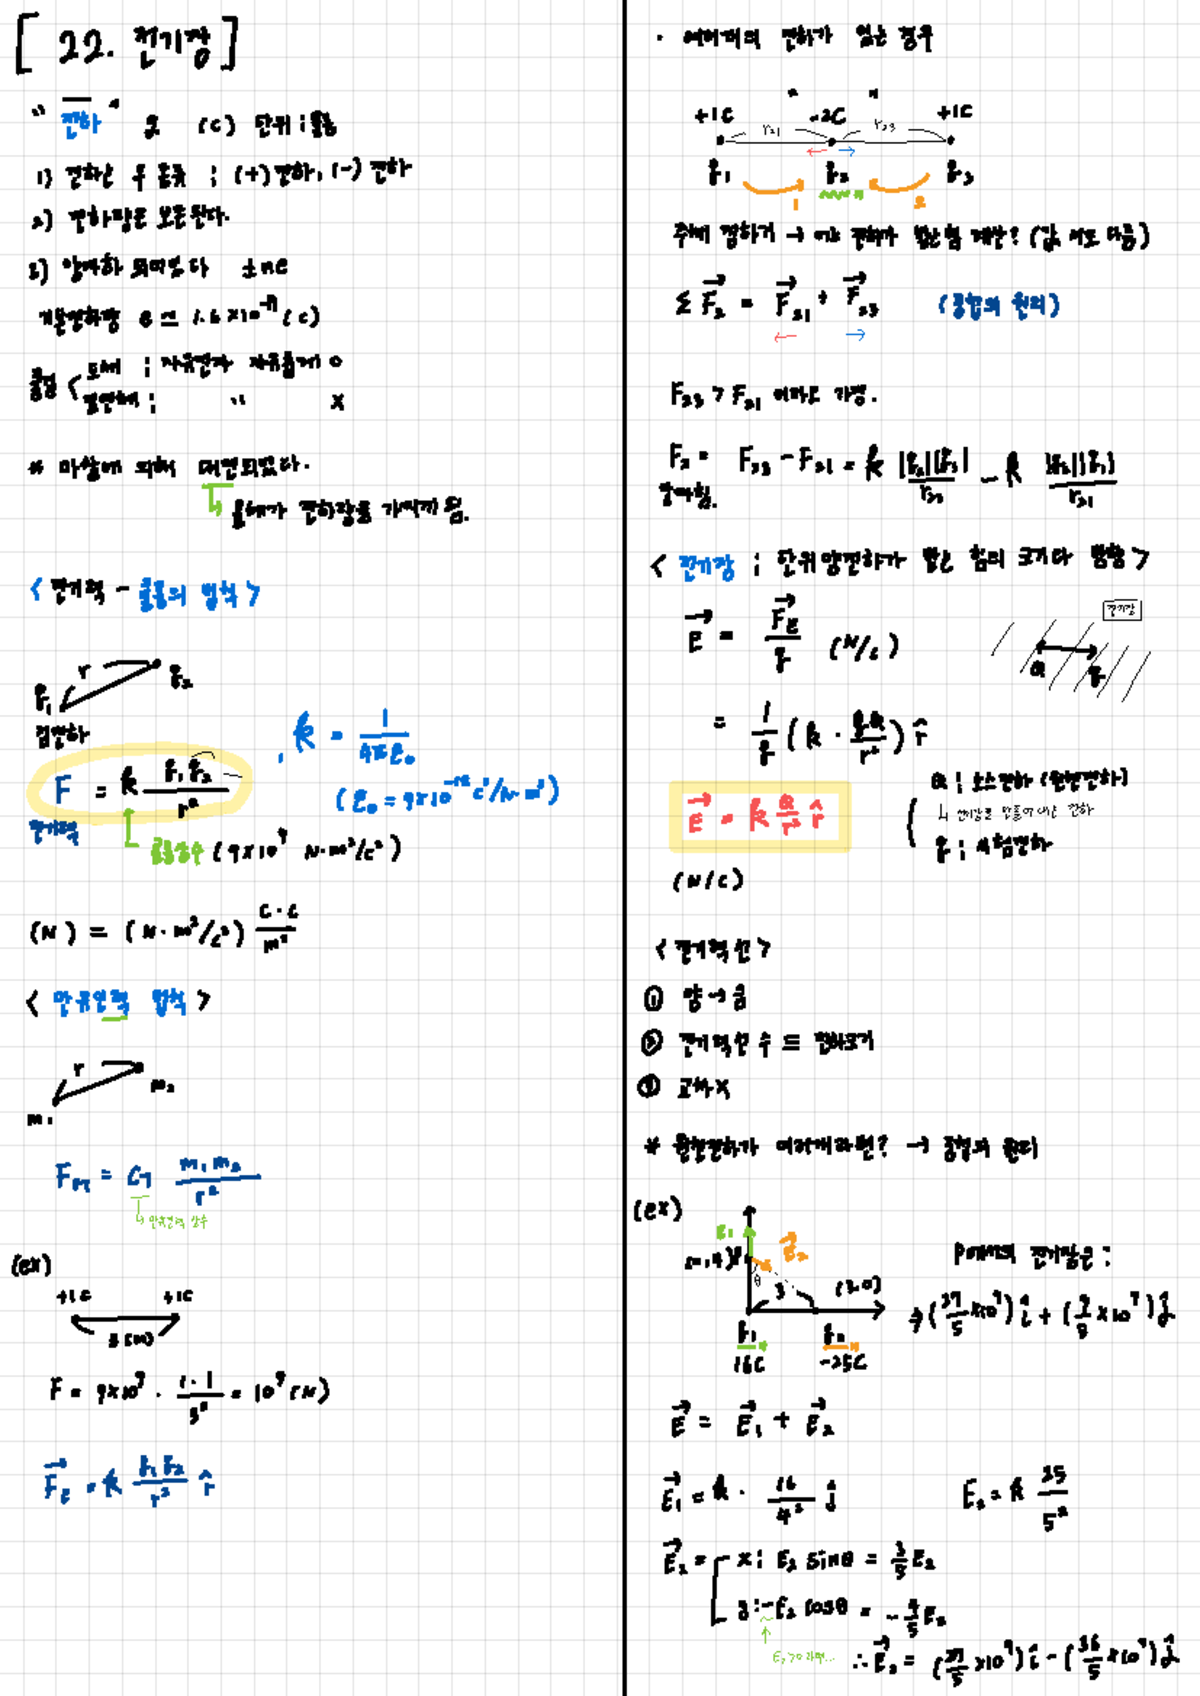 [ 22. 전기장 ]
"전하" q (C) 단위 ; 쿨롱
1) 전하는 두 종류 ; (+)전하, (-)전하
2) 전하량은 보존된다.
3) 양자화 되어있다 ±ne
기본전하량 e = 1.6×10⁻¹⁹(C)
물질 < 도체 ; 자유전자 자유롭게 O
절연체 ; " X
* 마찰에 의해 대전되었다.
↳ 물체가 전하량을 가지게 됨.
< 전기력 - 쿨롱의 법칙 >
r
q₁ q₂
점전하
F = k q₁q₂/r² , k = 1/4πε₀
(ε₀ = 9×10⁻¹² C²/N·m²)
전기력
쿨롱상수 (9×10⁹ N·m²/C²)
(N) = (N·m²/C²) C·C/m²
< 만유인력 법칙 >
r
m₁ m₂
Fm = G m₁m₂/r²
↳ 만유인력 상수
(ex)
+1C +1C
3(m)
F = 9×10⁹ · 1·1/3² = 10⁹(N)
F⃗E = k q₁q₂/r² r̂
· 여러개의 전하가 있는 경우
+1C -2C +1C
r₂₁ r₂₃
q₁ q₂ q₃
1 2
주체 정하기 → 어느 전하가 받는 힘 계산? (값 서로 다름)
ΣF⃗₂ = F⃗₂₁ + F⃗₂₃ (중첩의 원리)
F₂₃ > F₂₁ 이라고 가정.
F₂ = F₂₃ - F₂₁ = k |q₂||q₃|/r₂₃ - k |q₂||q₁|/r₂₁
알짜힘.
< 전기장 ; 단위양전하가 받는 힘의 크기와 방향 >
E⃗ = F⃗E/q (N/C)
전기장
Q q
= 1/q (k · qQ/r²) r̂
E⃗ = k Q/r² r̂
Q ; 소스전하 (원천전하)
↳ 전기장을 만들어내는 전하
q ; 시험전하
(N/C)
< 전기력선 >
① 양→음
② 전기력선 수 ≡ 전하크기
③ 교차 X
* 원천전하가 여러개라면? → 중첩의 원리
(ex)
E₁ E⃗₂
(0,4) P
θ
3 (3,0)
q₁ q₂
16C -25C
P에서의 전기장은 :
→ (27/5×10⁹) î + (9/5×10⁹) ĵ
E⃗ = E⃗₁ + E⃗₂
E⃗₁ = k · 16/4² ĵ E₂ = k 25/5²
E⃗₂ = x ; E₂ sinθ = 3/5 E₂
y : -E₂ cosθ = -4/5 E₂
E₂>0 라면...
∴ E⃗₂ = (27/5×10⁹) î - (36/5×10⁹) ĵ